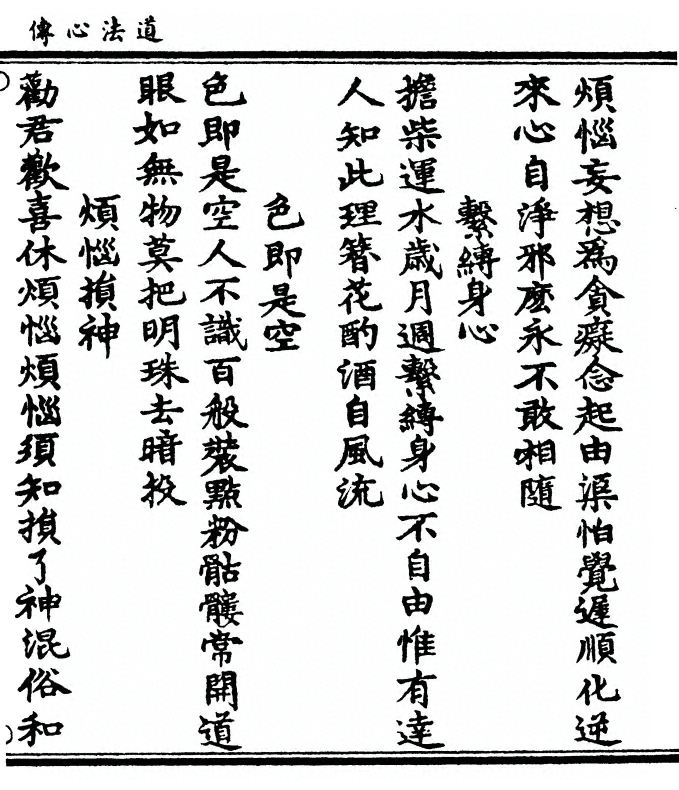 道法心傳
煩惱妄想為貪癡念起由渠怕覺遲順化逆
來心自淨邪魔永不敢相隨
繫縛身心
擔柴運水歲月週繫縛身心不自由惟有達
人知此理簪花酌酒自風流
色即是空
色即是空人不識百般裝點粉骷髏常開道
眼如無物莫把明珠去暗投
煩惱損神
勸君歡喜休煩惱煩惱須知損了神混俗和